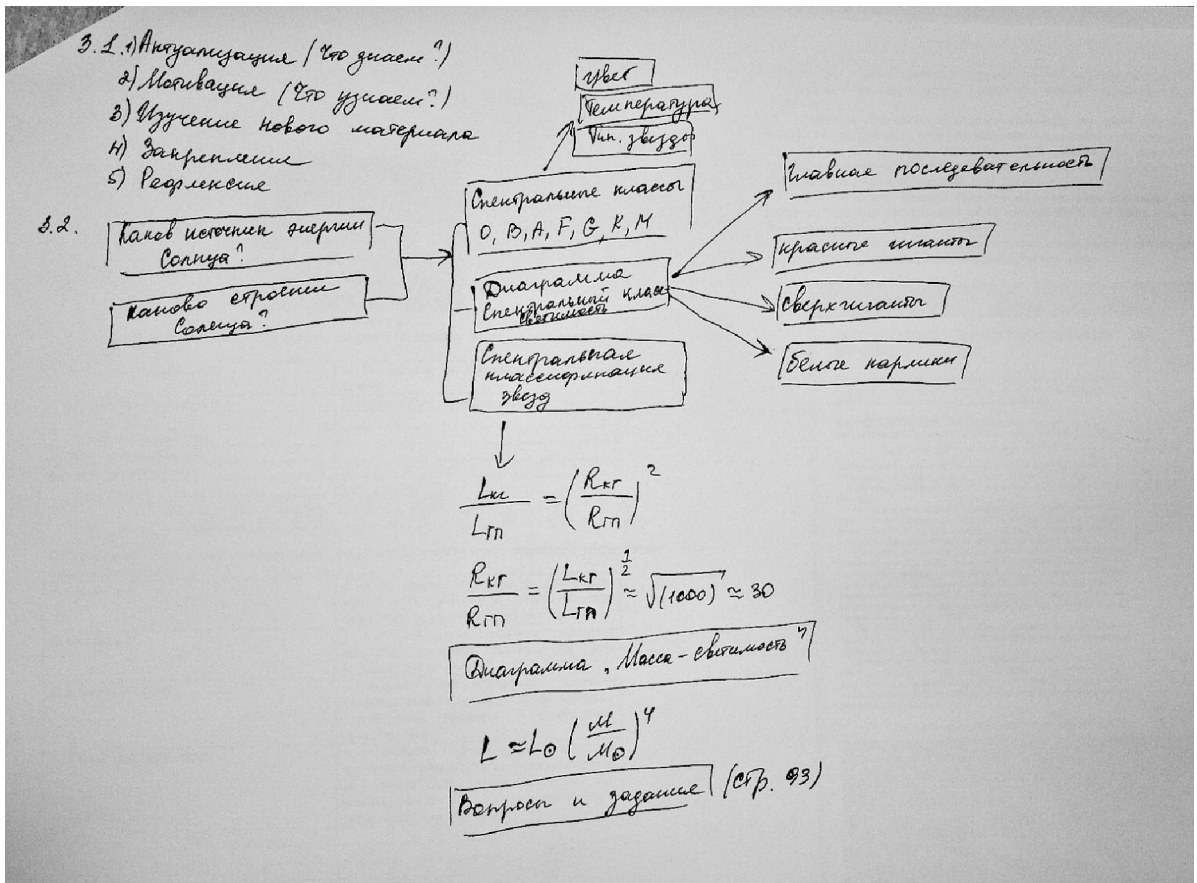 3.1. 1) Актуализация (Что знаем?)
2) Мотивация (Что узнаем?)
3) Изучение нового материала
4) Закрепление
5) Рефлексия
3.2.
Каков источник энергии
Солнца?
Каково строение
Солнца?
Цвет
Температура
Тип. звезды
Спектральные классы
O, B, A, F, G, K, M
Диаграмма
Спектральный класс
светимость
Спектральная
классификация
звезд
Главная последовательность
Красные гиганты
Сверхгиганты
белые карлики
Lкг / Lгп = (Rкг / Rгп)²
Rкг / Rгп = (Lкг / Lгп)^(1/2) ≈ √(1000) ≈ 30
Диаграмма „Масса-светимость"
L ≈ L⊙ (M / M⊙)⁴
Вопросы и задания (стр. 93)